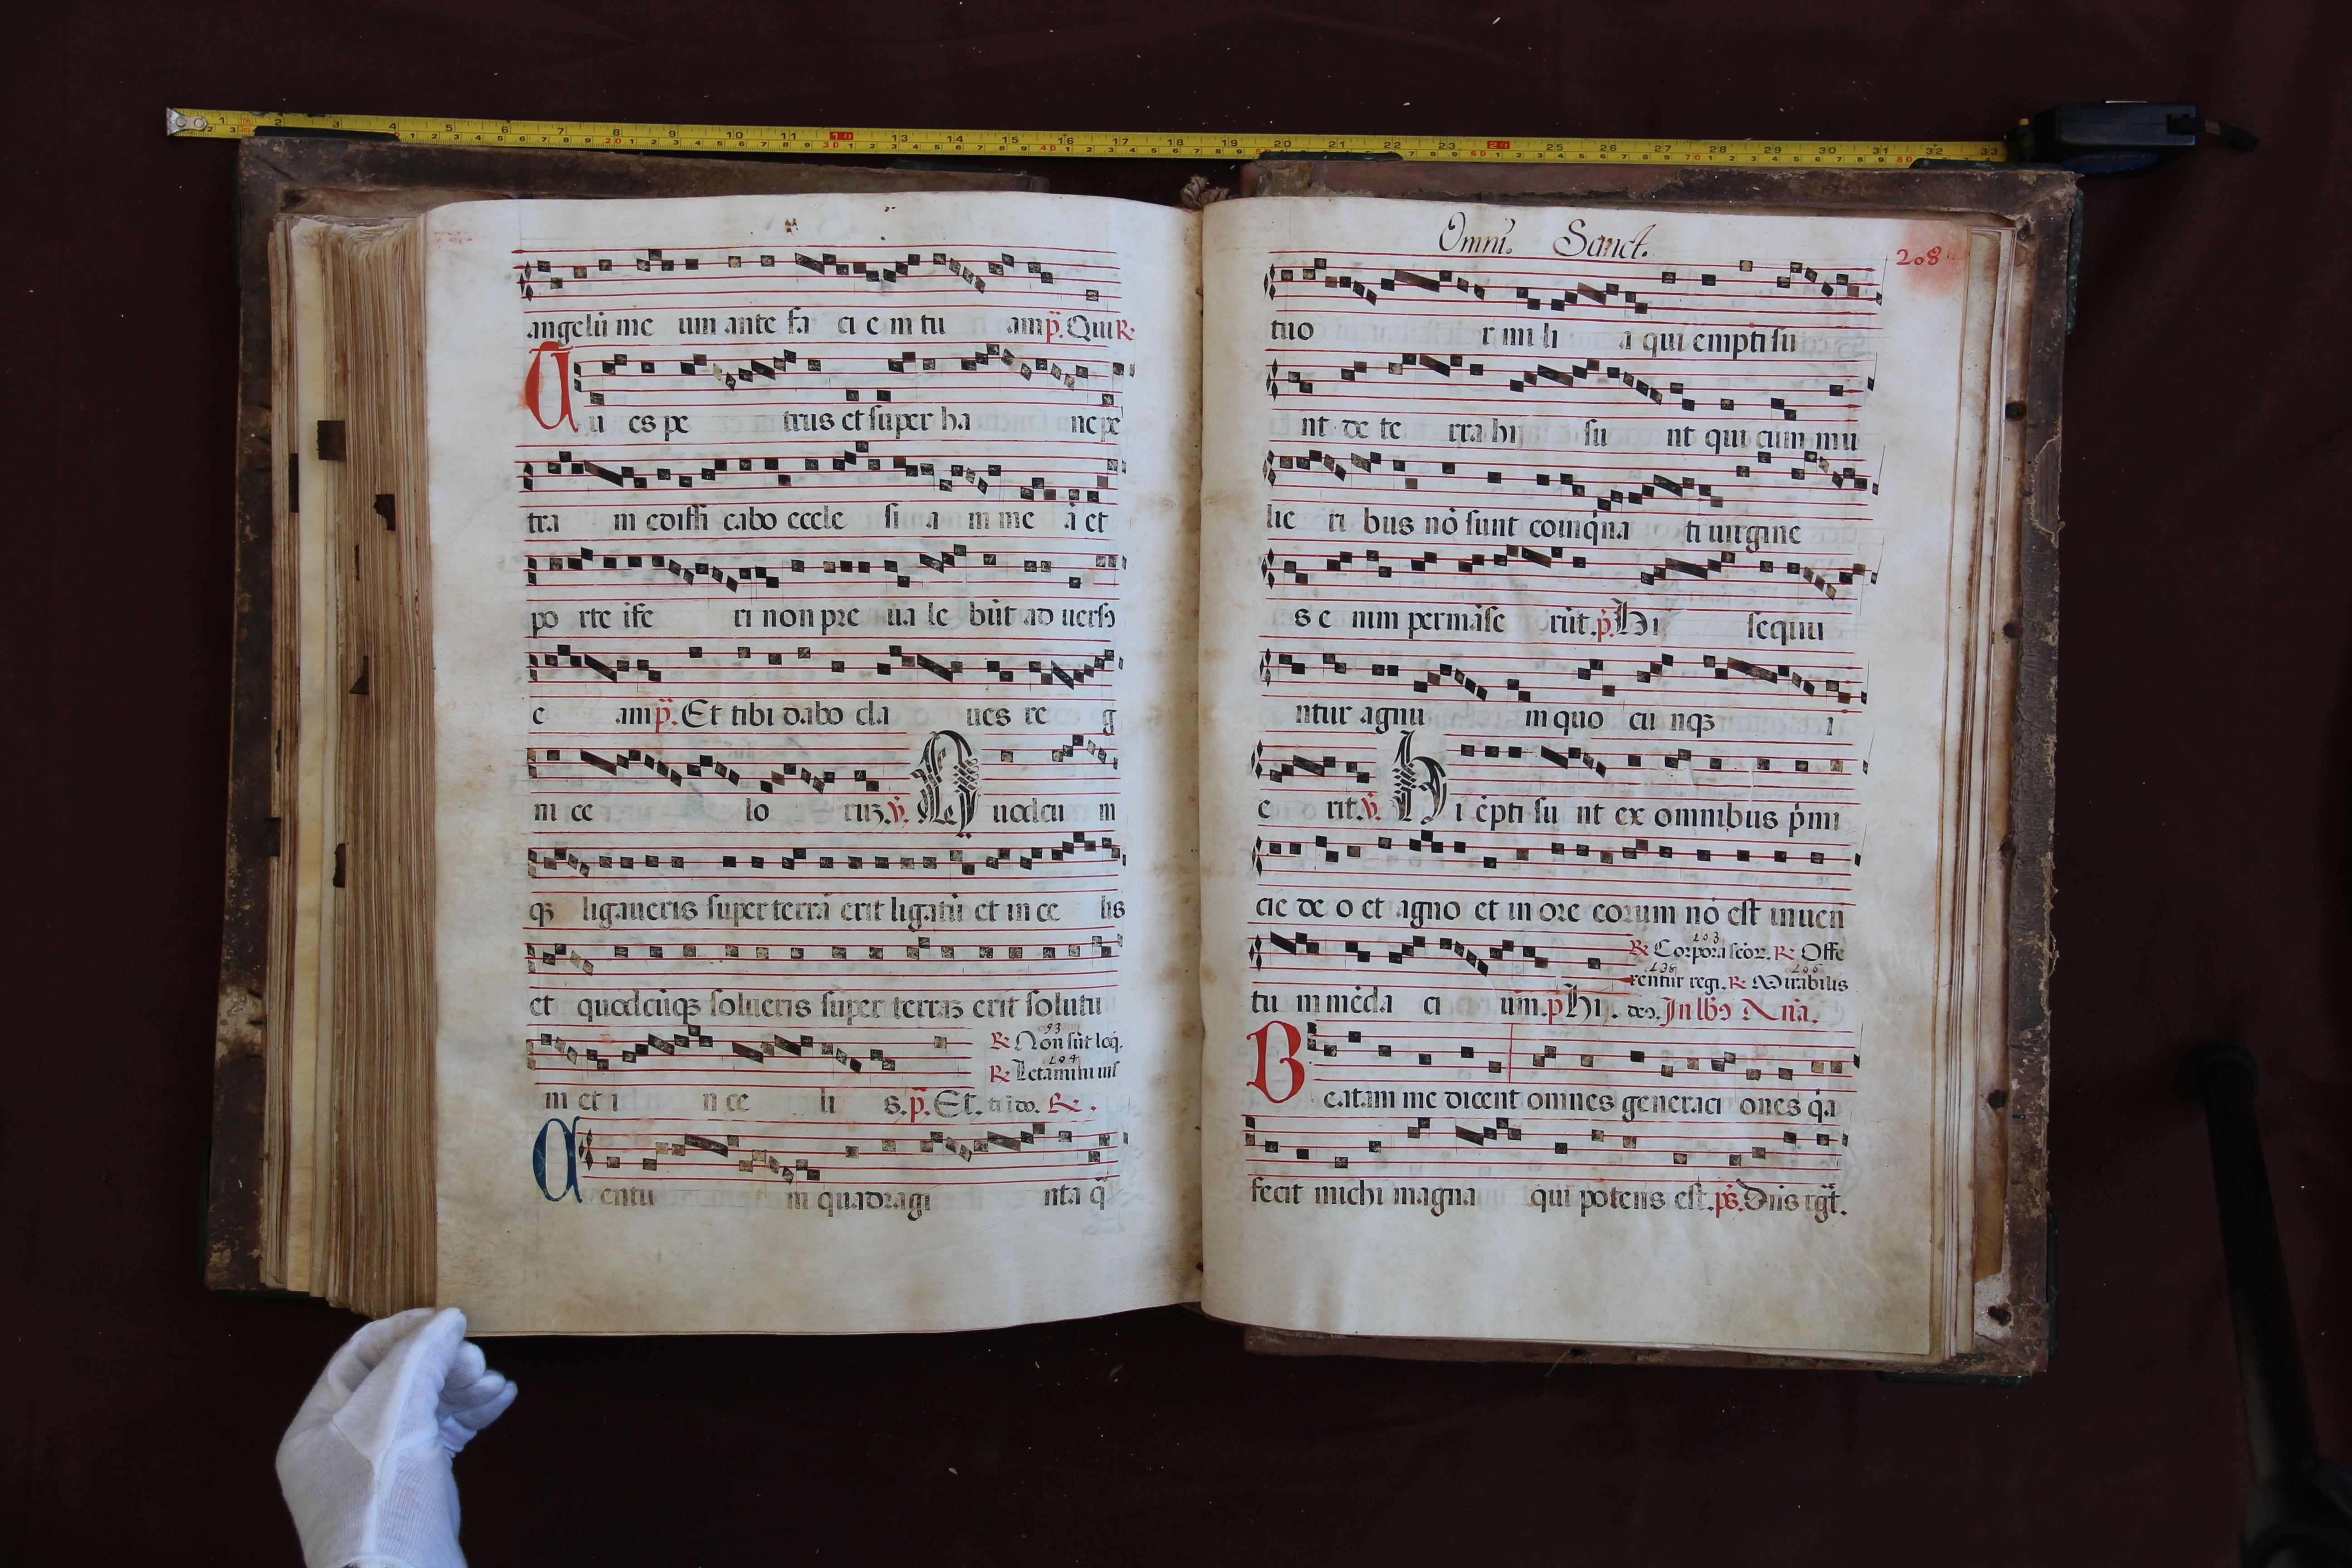 angelū me um ante fa ci e m tu am p̄. Qui R.
Tu es pe trus et super ha nc pe
tra m edifi cabo eccle si a m me ā et
po rte ife ri non pre ua le būt ad uersꝰ
e am p̄. Et tibi dabo cla ues re g
ni ce lo rūꝫ. v̄. Quodcū m
qꝫ ligaueris super terrā erit ligatū et in ce lis
et quodcūqꝫ solueris super terraꝫ erit solutu
93
R. Non sūt loq̄.
104
m et i n ce li s. p̄. Et. tibi do. R.
Centu m quadragi nta q̄
Omni. Sanct.
208
tuo r mi li a qui empti su
nt de te rra hi su nt qui cum mu
lie ri bus nō sunt coinq̄na ti uirgine
s e nim permāse rūt. p̄. Hi sequu
ntur agnu m quo cu nqꝫ i
e rit. v̄. Hi ēpti su nt ex omnibus p̄mi
cie de o et agno et in ore eorum nō est inuen
203
R. Corpora scōꝝ. R. Offe
138 206
rentur regi. R. Mirabilis
tu m mēda ci um. p̄ Hi. deꝰ. In lbꝰ Ana.
Beatam me dicent omnes generaci ones q̄a
fecit michi magna qui potens est. ps. Dn̄s rgt̄.